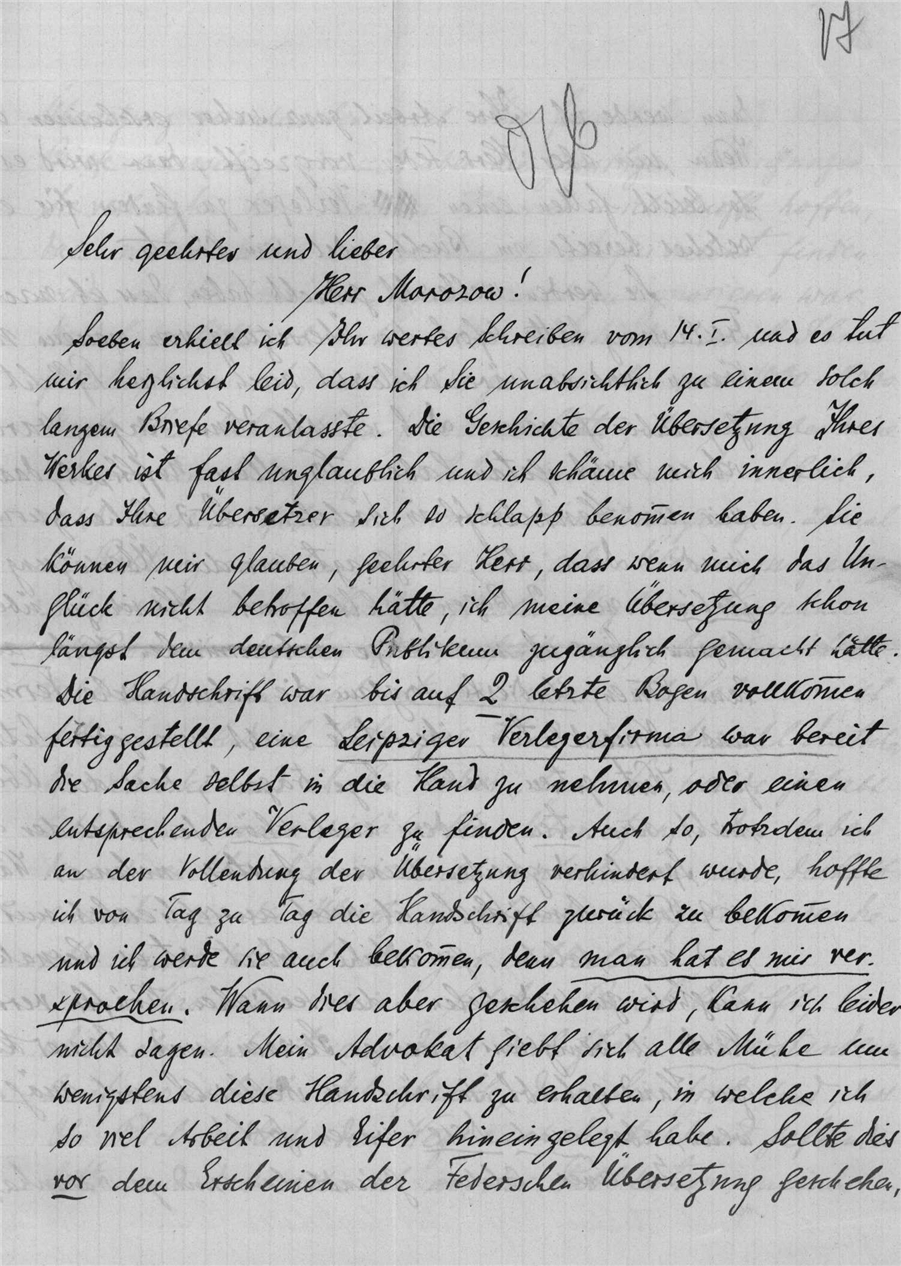 17
Sehr geehrter und lieber
Herr Morozow!
Soeben erhielt ich Ihr wertes Schreiben vom 14.I. und es tut
mir herzlichst leid, dass ich Sie unabsichtlich zu einem solch
langem Briefe veranlasste. Die Geschichte der Übersetzung Ihres
Werkes ist fast unglaublich und ich schäme mich innerlich,
dass Ihre Übersetzer sich so schlapp benom̅en haben. Sie
können mir glauben, geehrter Herr, dass wenn mich das Un-
glück nicht betroffen hätte, ich meine Übersetzung schon
längst dem deutschen Publikum zugänglich gemacht hätte.
Die Handschrift war bis auf 2 letzte Bogen vollkom̅en
fertiggestellt, eine Leipziger Verlegerfirma war bereit
die Sache selbst in die Hand zu nehmen, oder einen
entsprechenden Verleger zu finden. Auch so, trotzdem ich
an der Vollendung der Übersetzung verhindert wurde, hoffte
ich von Tag zu Tag die Handschrift zurück zu bekom̅en
und ich werde sie auch bekom̅en, denn man hat es mir ver-
sprochen. Wann dies aber geschehen wird, kann ich leider
nicht sagen. Mein Advokat giebt sich alle Mühe um
wenigstens diese Handschrift zu erhalten, in welche ich
so viel Arbeit und Eifer hineingelegt habe. Sollte dies
vor dem Erscheinen der Federschen Übersetzung geschehen,